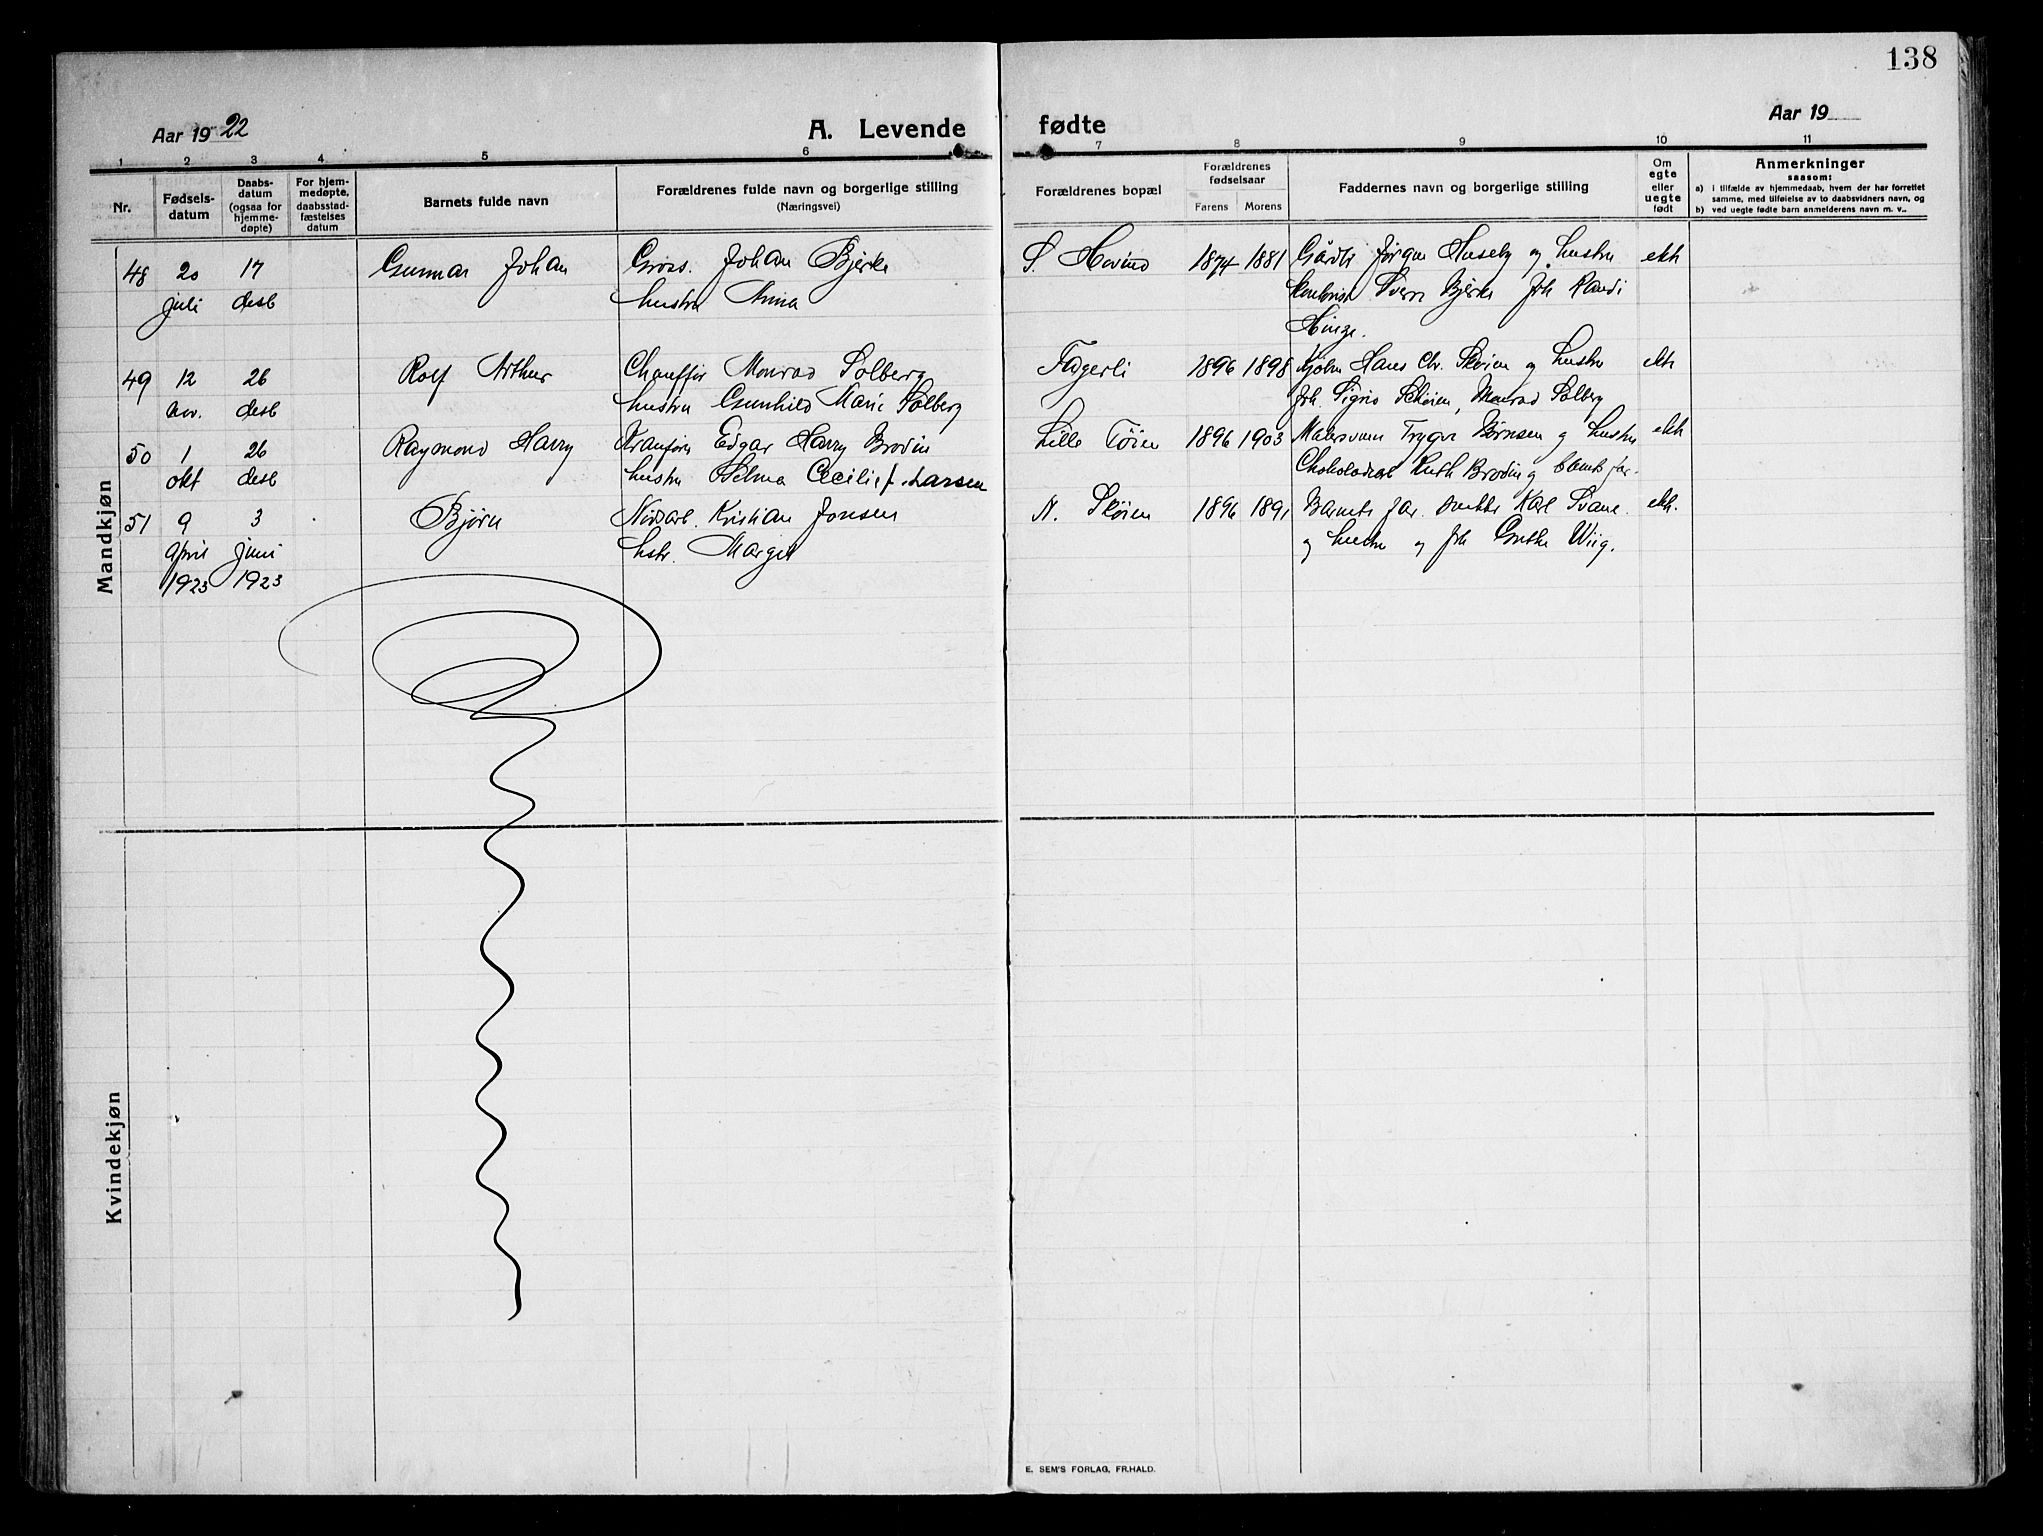 138
Aar 1922
A. Levende fødte
Aar 19
1 2 3 4 5 6 7 8 9 10 11
Nr.
Fødsels-
datum
Daabs-
datum
(ogsaa for
hjemme-
døpte)
For hjem-
medøpte,
daabsstad-
fæstelses
datum
Barnets fulde navn
Forældrenes fulde navn og borgerlige stilling
(Næringsvei)
Forældrenes bopæl
Forældrenes
fødselsaar
Farens Morens
Faddernes navn og borgerlige stilling
Om
egte
eller
uegte
født
Anmerkninger
saasom:
a) i tilfælde av hjemmedaab, hvem der har forrettet
samme, med tilføielse av to daabsvidners navn, og
b) ved uegte fødte barn anmelderens navn m. v..
Mandkjøn
48 20 17 Gunnar Johan Gross. Johan Bjerke S. Hovind 1874 1881 Gårdb Jørgen Huseby og hustru ekte
juli desb hustru Anna Kontorist Sverre Bjerke frk Randi
Hinze.
49 12 26 Rolf Arthur Chauffør Monrad Solberg Fagerli 1896 1898 Hans Chr. Skøien og hustru ekte
nov. desb hustru Gunhild Marie Solberg frk. Sigrid Skøien, Monrad Solberg
50 1 26 Raymond Harry Kranfører Edgar Harry Brodin Lille Tøien 1896 1903 Malersvenn Trygve Børnsen og hustru ekte
okt desb hustru Selma Cecilie f. Larsen Ruth Brodin og barnets far.
51 9 3 Bjørn Kristian Jonsen N. Skøien 1896 1891 Barnets far. Karl Svane. ekte.
april juni hstr. Margit og hustru og frk Grethe Wiig.
1923 1923
Kvindekjøn
E. SEM'S FORLAG, FR.HALD.